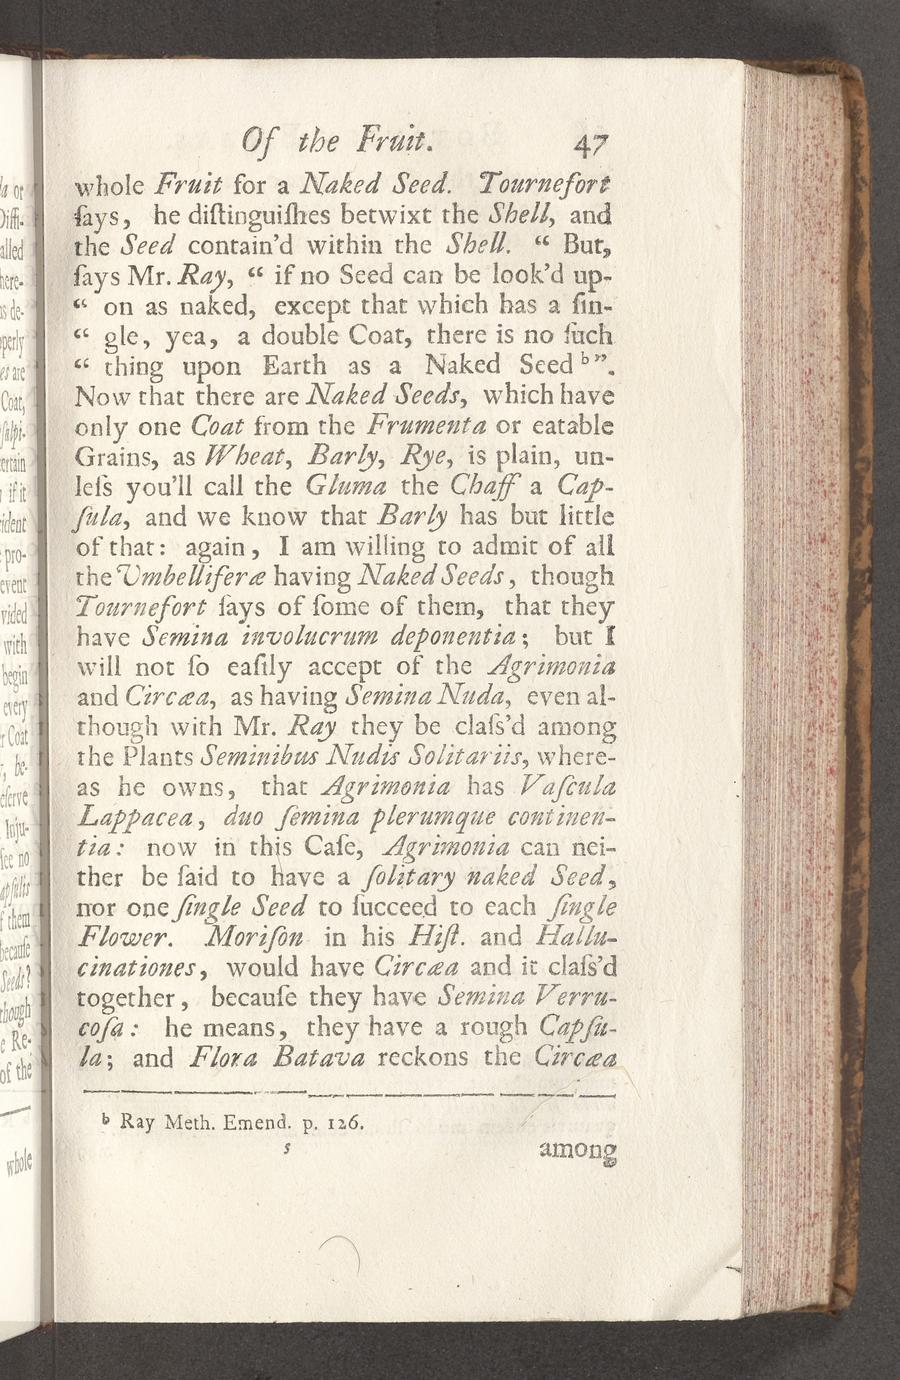 Of the Fruit. 47
whole Fruit for a Naked Seed. Tournefort
ſays, he diſtinguiſhes betwixt the Shell, and
the Seed contain'd within the Shell. “ But,
ſays Mr. Ray, “ if no Seed can be look'd up-
“ on as naked, except that which has a ſin-
“ gle, yea, a double Coat, there is no ſuch
“ thing upon Earth as a Naked Seed ᵇ”.
Now that there are Naked Seeds, which have
only one Coat from the Frumenta or eatable
Grains, as Wheat, Barly, Rye, is plain, un-
leſs you'll call the Gluma the Chaff a Cap-
ſula, and we know that Barly has but little
of that: again, I am willing to admit of all
the Umbelliferæ having Naked Seeds, though
Tournefort ſays of ſome of them, that they
have Semina involucrum deponentia; but I
will not ſo eaſily accept of the Agrimonia
and Circæa, as having Semina Nuda, even al-
though with Mr. Ray they be claſs'd among
the Plants Seminibus Nudis Solitariis, where-
as he owns, that Agrimonia has Vaſcula
Lappacea, duo ſemina plerumque continen-
tia: now in this Caſe, Agrimonia can nei-
ther be ſaid to have a ſolitary naked Seed,
nor one ſingle Seed to ſucceed to each ſingle
Flower. Moriſon in his Hiſt. and Hallu-
cinationes, would have Circæa and it claſs'd
together, becauſe they have Semina Verru-
coſa: he means, they have a rough Capſu-
la; and Flora Batava reckons the Circæa
ᵇ Ray Meth. Emend. p. 126.
s among